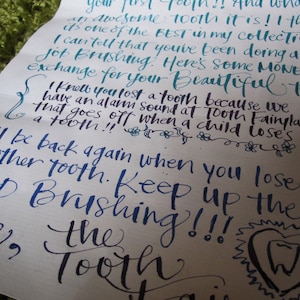 your first Tooth!! And what
an awesome tooth it is! I th
it's one of the BEST in my collection
I can tell that you've been doing a
job Brushing. Here's some MONE
xchange for your Beautiful t
I knew you lost a tooth because we
have an alarm sound at Tooth Fairyla
that goes off when a child loses
a tooth!!
ll be back again when you lose
other tooth. Keep up the
D Brushing!!!
the
Tooth